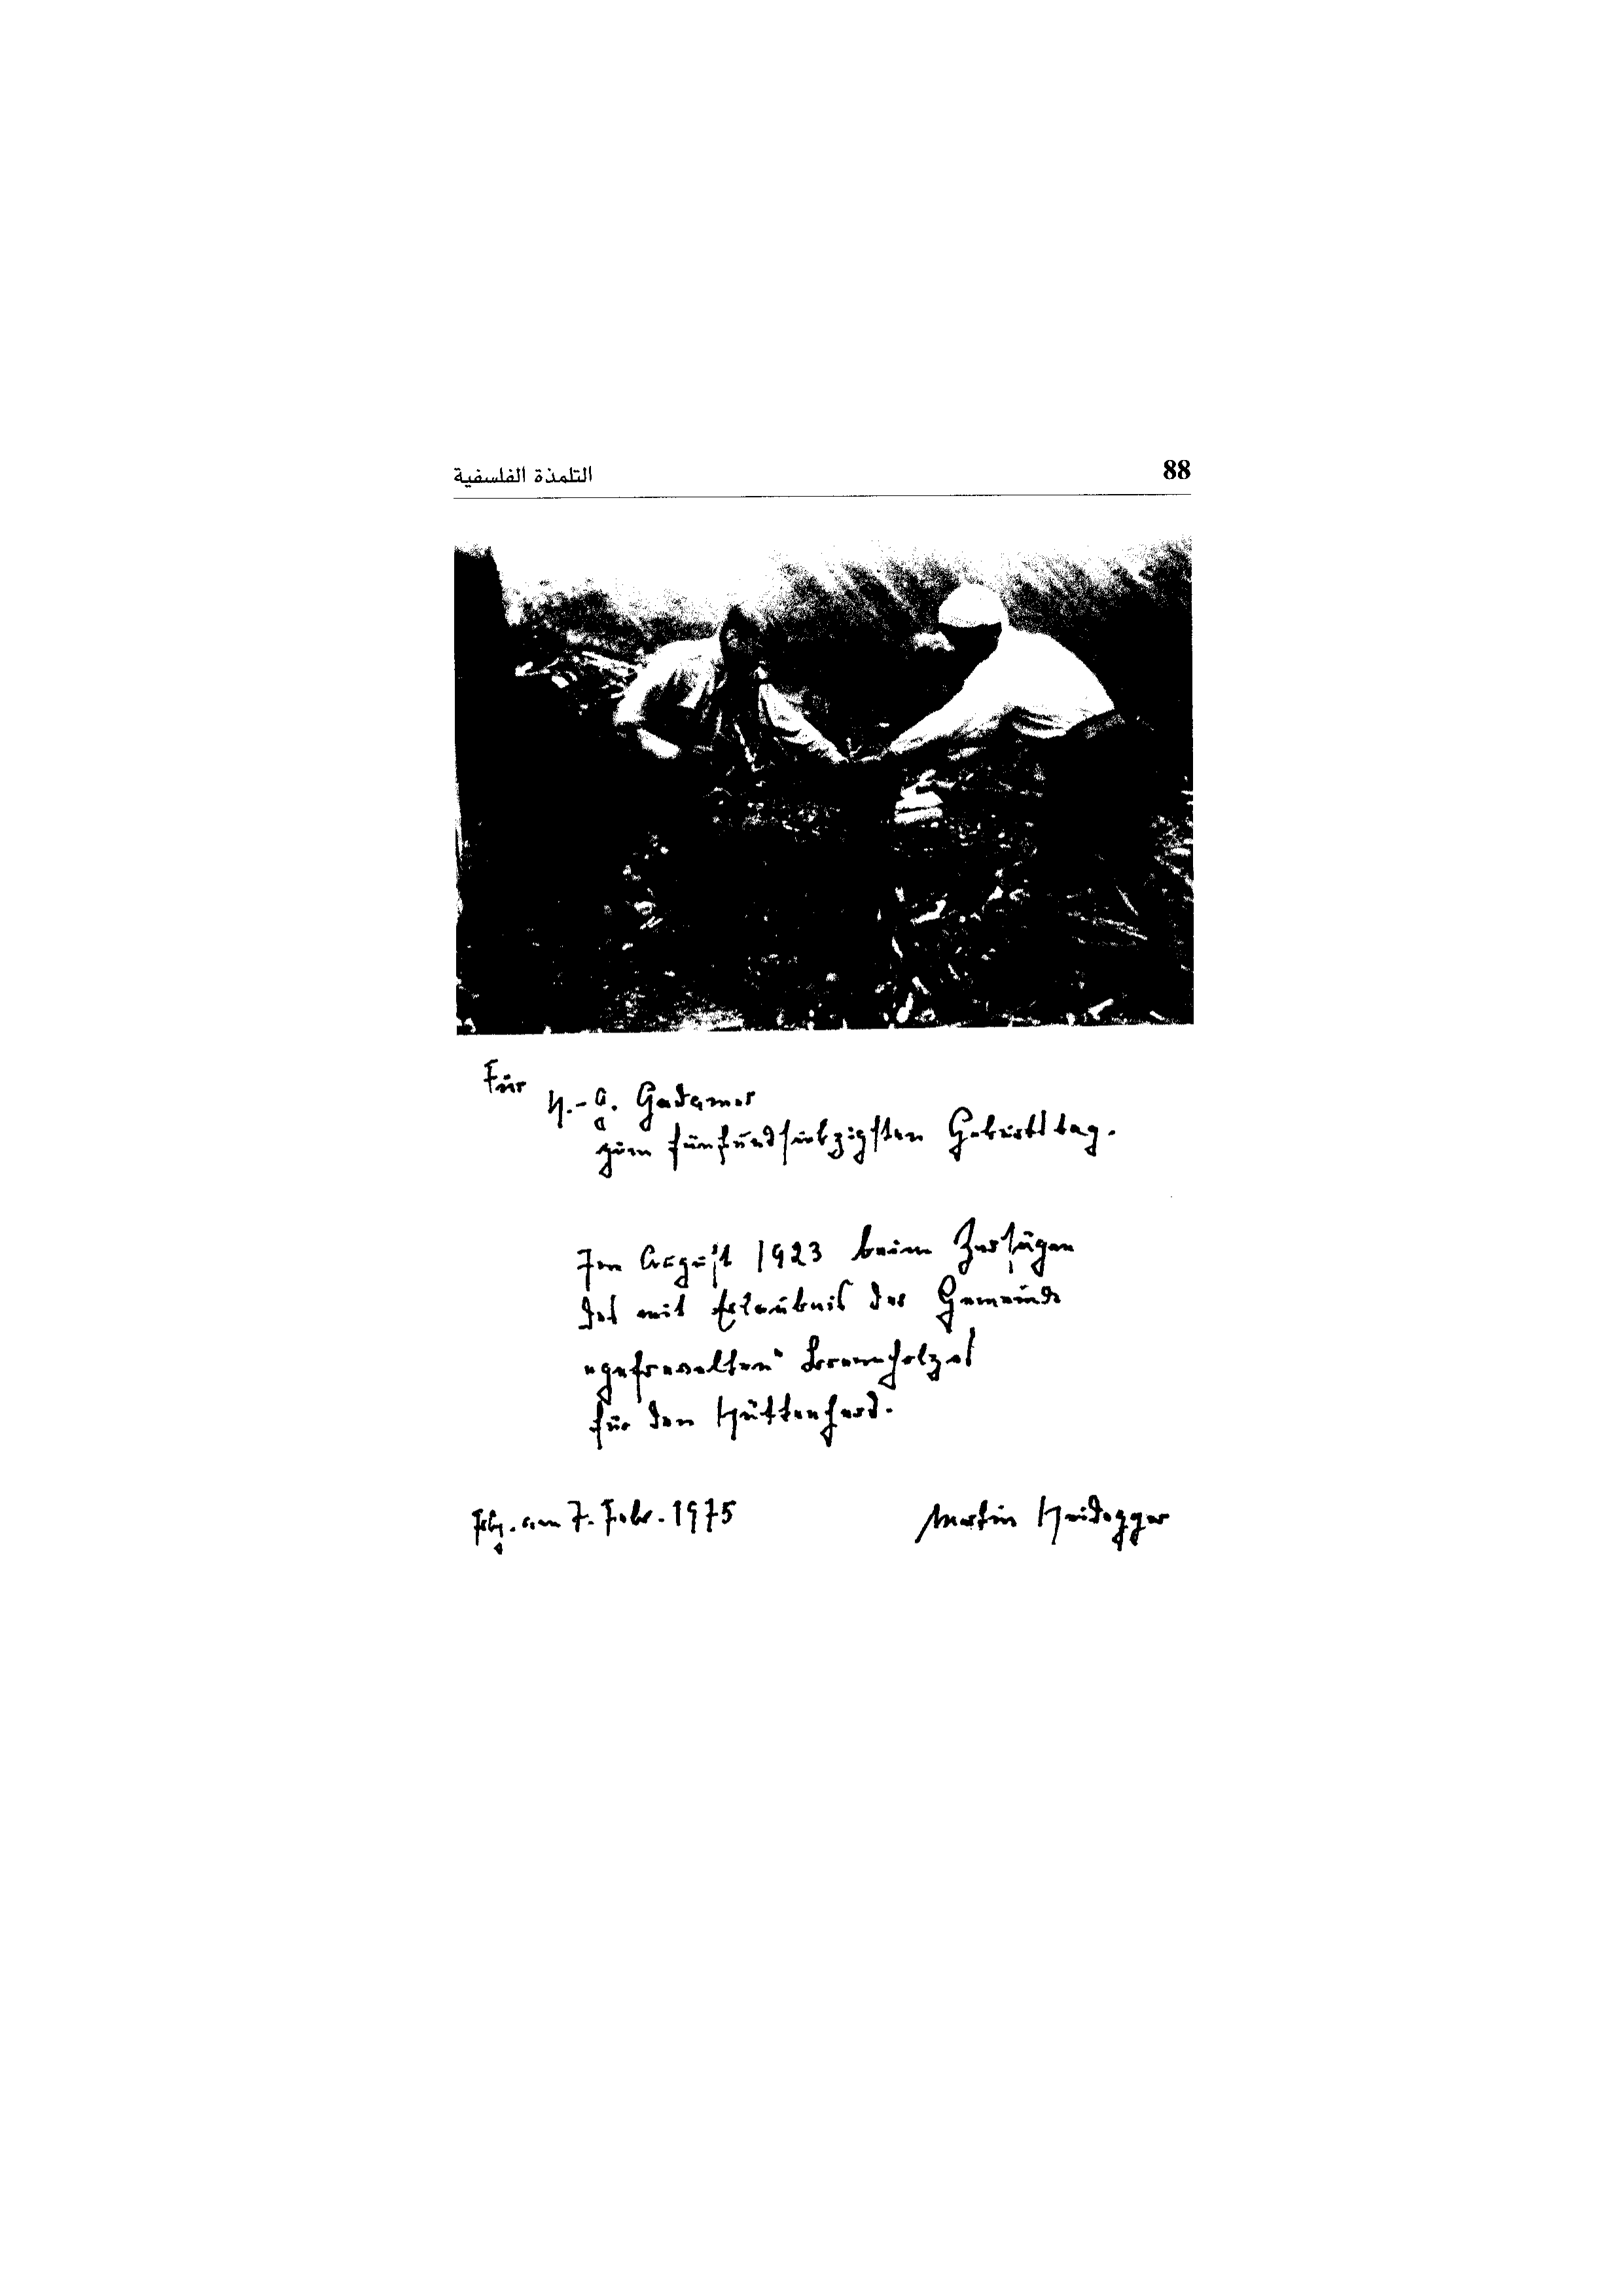 88
التلمذة الفلسفية
Für
H.-G. Gadamer
zum fünfundsiebzigsten Geburtstag.
Im August 1923 beim Zersägen
des mit Erlaubnis der Gemeinde
„gefrevelten" Brennholzes
für den Hüttenherd.
Frbg. am 7. Febr. 1975
Martin Heidegger